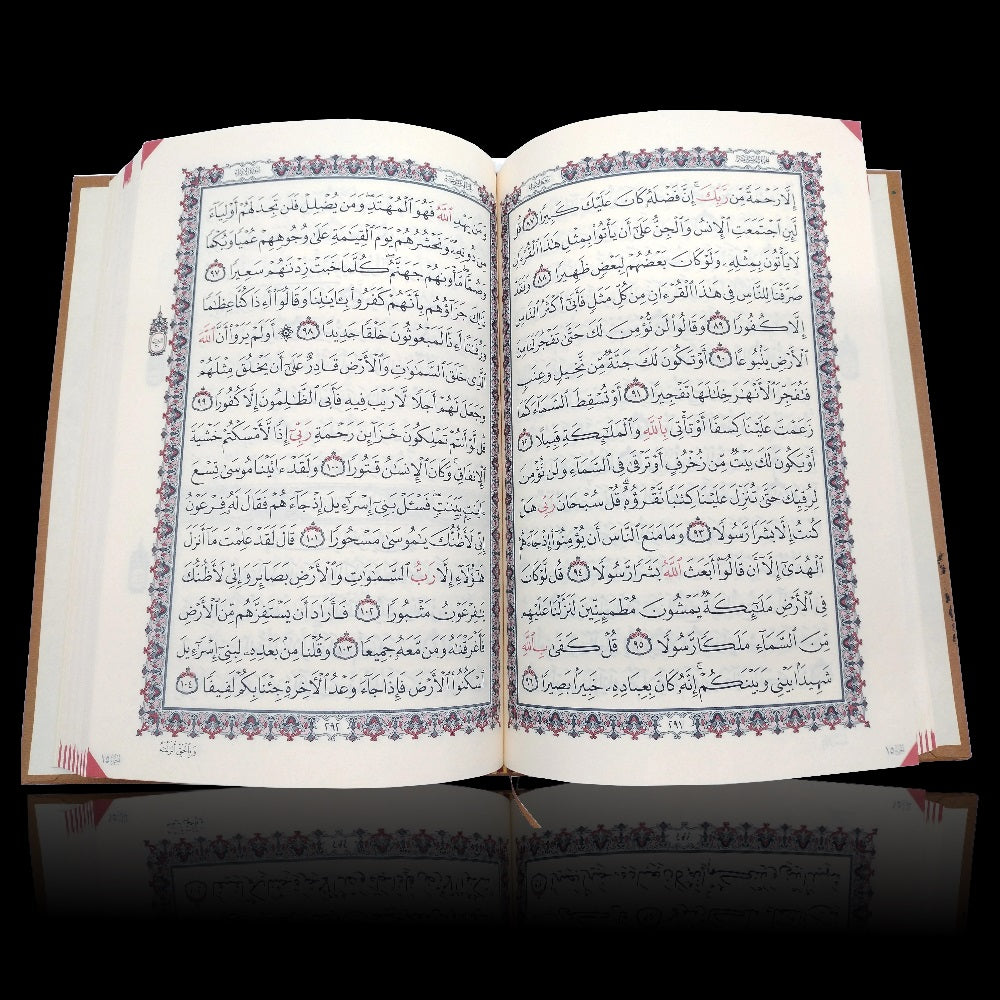 إِلَّا رَحْمَةً مِّن رَّبِّكَ ۚ إِنَّ فَضْلَهُۥ كَانَ عَلَيْكَ كَبِيرًا ٨٧ قُل
لَّئِنِ ٱجْتَمَعَتِ ٱلْإِنسُ وَٱلْجِنُّ عَلَىٰٓ أَن يَأْتُوا۟ بِمِثْلِ هَٰذَا ٱلْقُرْءَانِ
لَا يَأْتُونَ بِمِثْلِهِۦ وَلَوْ كَانَ بَعْضُهُمْ لِبَعْضٍ ظَهِيرًا ٨٨ وَلَقَدْ
صَرَّفْنَا لِلنَّاسِ فِى هَٰذَا ٱلْقُرْءَانِ مِن كُلِّ مَثَلٍ فَأَبَىٰٓ أَكْثَرُ ٱلنَّاسِ
إِلَّا كُفُورًا ٨٩ وَقَالُوا۟ لَن نُّؤْمِنَ لَكَ حَتَّىٰ تَفْجُرَ لَنَا مِنَ
ٱلْأَرْضِ يَنۢبُوعًا ٩٠ أَوْ تَكُونَ لَكَ جَنَّةٌ مِّن نَّخِيلٍ وَعِنَبٍ
فَتُفَجِّرَ ٱلْأَنْهَٰرَ خِلَٰلَهَا تَفْجِيرًا ٩١ أَوْ تُسْقِطَ ٱلسَّمَآءَ كَمَا
زَعَمْتَ عَلَيْنَا كِسَفًا أَوْ تَأْتِىَ بِٱللَّهِ وَٱلْمَلَٰٓئِكَةِ قَبِيلًا ٩٢
أَوْ يَكُونَ لَكَ بَيْتٌ مِّن زُخْرُفٍ أَوْ تَرْقَىٰ فِى ٱلسَّمَآءِ وَلَن نُّؤْمِنَ
لِرُقِيِّكَ حَتَّىٰ تُنَزِّلَ عَلَيْنَا كِتَٰبًا نَّقْرَؤُهُۥ ۗ قُلْ سُبْحَانَ رَبِّى هَلْ
كُنتُ إِلَّا بَشَرًا رَّسُولًا ٩٣ وَمَا مَنَعَ ٱلنَّاسَ أَن يُؤْمِنُوٓا۟ إِذْ جَآءَهُمُ
ٱلْهُدَىٰٓ إِلَّآ أَن قَالُوٓا۟ أَبَعَثَ ٱللَّهُ بَشَرًا رَّسُولًا ٩٤ قُل لَّوْ كَانَ
فِى ٱلْأَرْضِ مَلَٰٓئِكَةٌ يَمْشُونَ مُطْمَئِنِّينَ لَنَزَّلْنَا عَلَيْهِم
مِّنَ ٱلسَّمَآءِ مَلَكًا رَّسُولًا ٩٥ قُلْ كَفَىٰ بِٱللَّهِ
شَهِيدًۢا بَيْنِى وَبَيْنَكُمْ ۚ إِنَّهُۥ كَانَ بِعِبَادِهِۦ خَبِيرًۢا بَصِيرًا ٩٦
٢٩١
الجزء ١٥
وَمَن يَهْدِ ٱللَّهُ فَهُوَ ٱلْمُهْتَدِ ۖ وَمَن يُضْلِلْ فَلَن تَجِدَ لَهُمْ أَوْلِيَآءَ
مِن دُونِهِۦ ۖ وَنَحْشُرُهُمْ يَوْمَ ٱلْقِيَٰمَةِ عَلَىٰ وُجُوهِهِمْ عُمْيًا وَبُكْمًا
وَصُمًّا ۖ مَّأْوَىٰهُمْ جَهَنَّمُ ۖ كُلَّمَا خَبَتْ زِدْنَٰهُمْ سَعِيرًا ٩٧
ذَٰلِكَ جَزَآؤُهُم بِأَنَّهُمْ كَفَرُوا۟ بِـَٔايَٰتِنَا وَقَالُوٓا۟ أَءِذَا كُنَّا عِظَٰمًا
وَرُفَٰتًا أَءِنَّا لَمَبْعُوثُونَ خَلْقًا جَدِيدًا ٩٨ ۞ أَوَلَمْ يَرَوْا۟ أَنَّ ٱللَّهَ
ٱلَّذِى خَلَقَ ٱلسَّمَٰوَٰتِ وَٱلْأَرْضَ قَادِرٌ عَلَىٰٓ أَن يَخْلُقَ مِثْلَهُمْ
وَجَعَلَ لَهُمْ أَجَلًا لَّا رَيْبَ فِيهِ فَأَبَى ٱلظَّٰلِمُونَ إِلَّا كُفُورًا ٩٩
قُل لَّوْ أَنتُمْ تَمْلِكُونَ خَزَآئِنَ رَحْمَةِ رَبِّىٓ إِذًا لَّأَمْسَكْتُمْ خَشْيَةَ
ٱلْإِنفَاقِ ۚ وَكَانَ ٱلْإِنسَٰنُ قَتُورًا ١٠٠ وَلَقَدْ ءَاتَيْنَا مُوسَىٰ تِسْعَ
ءَايَٰتٍۭ بَيِّنَٰتٍ ۖ فَسْـَٔلْ بَنِىٓ إِسْرَٰٓءِيلَ إِذْ جَآءَهُمْ فَقَالَ لَهُۥ فِرْعَوْنُ
إِنِّى لَأَظُنُّكَ يَٰمُوسَىٰ مَسْحُورًا ١٠١ قَالَ لَقَدْ عَلِمْتَ مَآ أَنزَلَ
هَٰٓؤُلَآءِ إِلَّا رَبُّ ٱلسَّمَٰوَٰتِ وَٱلْأَرْضِ بَصَآئِرَ وَإِنِّى لَأَظُنُّكَ
يَٰفِرْعَوْنُ مَثْبُورًا ١٠٢ فَأَرَادَ أَن يَسْتَفِزَّهُم مِّنَ ٱلْأَرْضِ
فَأَغْرَقْنَٰهُ وَمَن مَّعَهُۥ جَمِيعًا ١٠٣ وَقُلْنَا مِنۢ بَعْدِهِۦ لِبَنِىٓ إِسْرَٰٓءِيلَ
ٱسْكُنُوا۟ ٱلْأَرْضَ فَإِذَا جَآءَ وَعْدُ ٱلْءَاخِرَةِ جِئْنَا بِكُمْ لَفِيفًا ١٠٤
٢٩٢
وَبِٱلْحَقِّ أَنزَلْنَٰهُ
الجزء ١٥